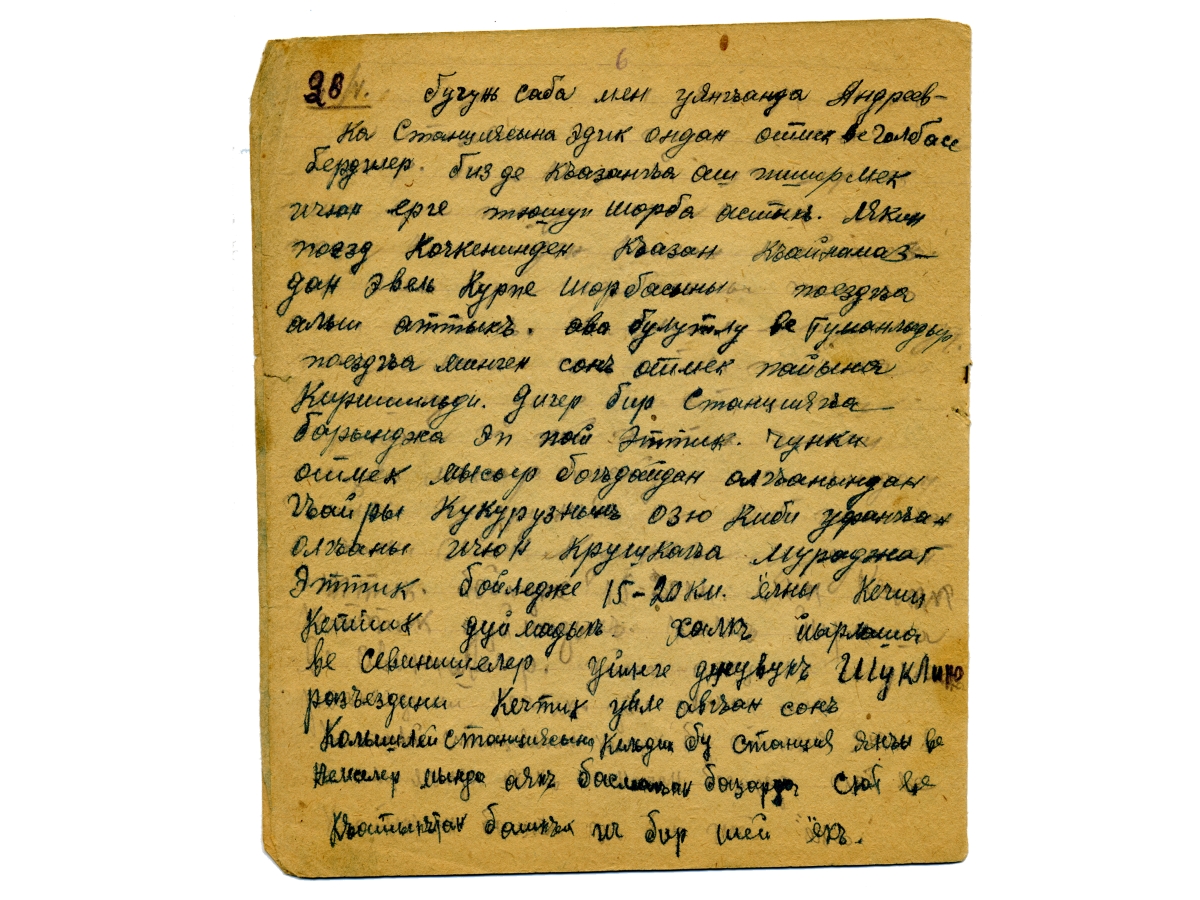 6
28/V. Бугунь саба мен уянгъанда Андреев-
ка Станциясына эдик ондан отмек ве Колбаса
бердилер. бизде Къазангъа аш пиширмек
ичюн ерге тюшуп Шорба астыкъ. Лякин
поезд Кочкенинден Къазан Къайнамаз-
дан Эвель Курпе Шорбасыны поездгъа
алып аттыкъ. ава булутлу ве Туманлыдыр
поездгъа минген сонъ отмек пайына
Киришильди. Дигер бир Станциягъа
барынджа эп пай Эттик. чунки
отмек мысыр богъдайдан олгъанындан
гъайры Кукурузнынъ озю Киби уфангъан
олгъаны ичюн Кружкагъа мураджат
Эттик. бойледже 15-20 км. ёлны Кечип
Кеттик дуймадыкъ. Халкъ йырлаша
ве севинишелер. Уйлеге джувукъ Шуклино
разъездини Кечтик уйле авгъан сонъ
Колышлей станциясына Кельдик бу станция янъы ве
Немселер мында аякъ басмагъан базарда сют ве
Къатыкътан башкъа ич бир шей ёкъ.